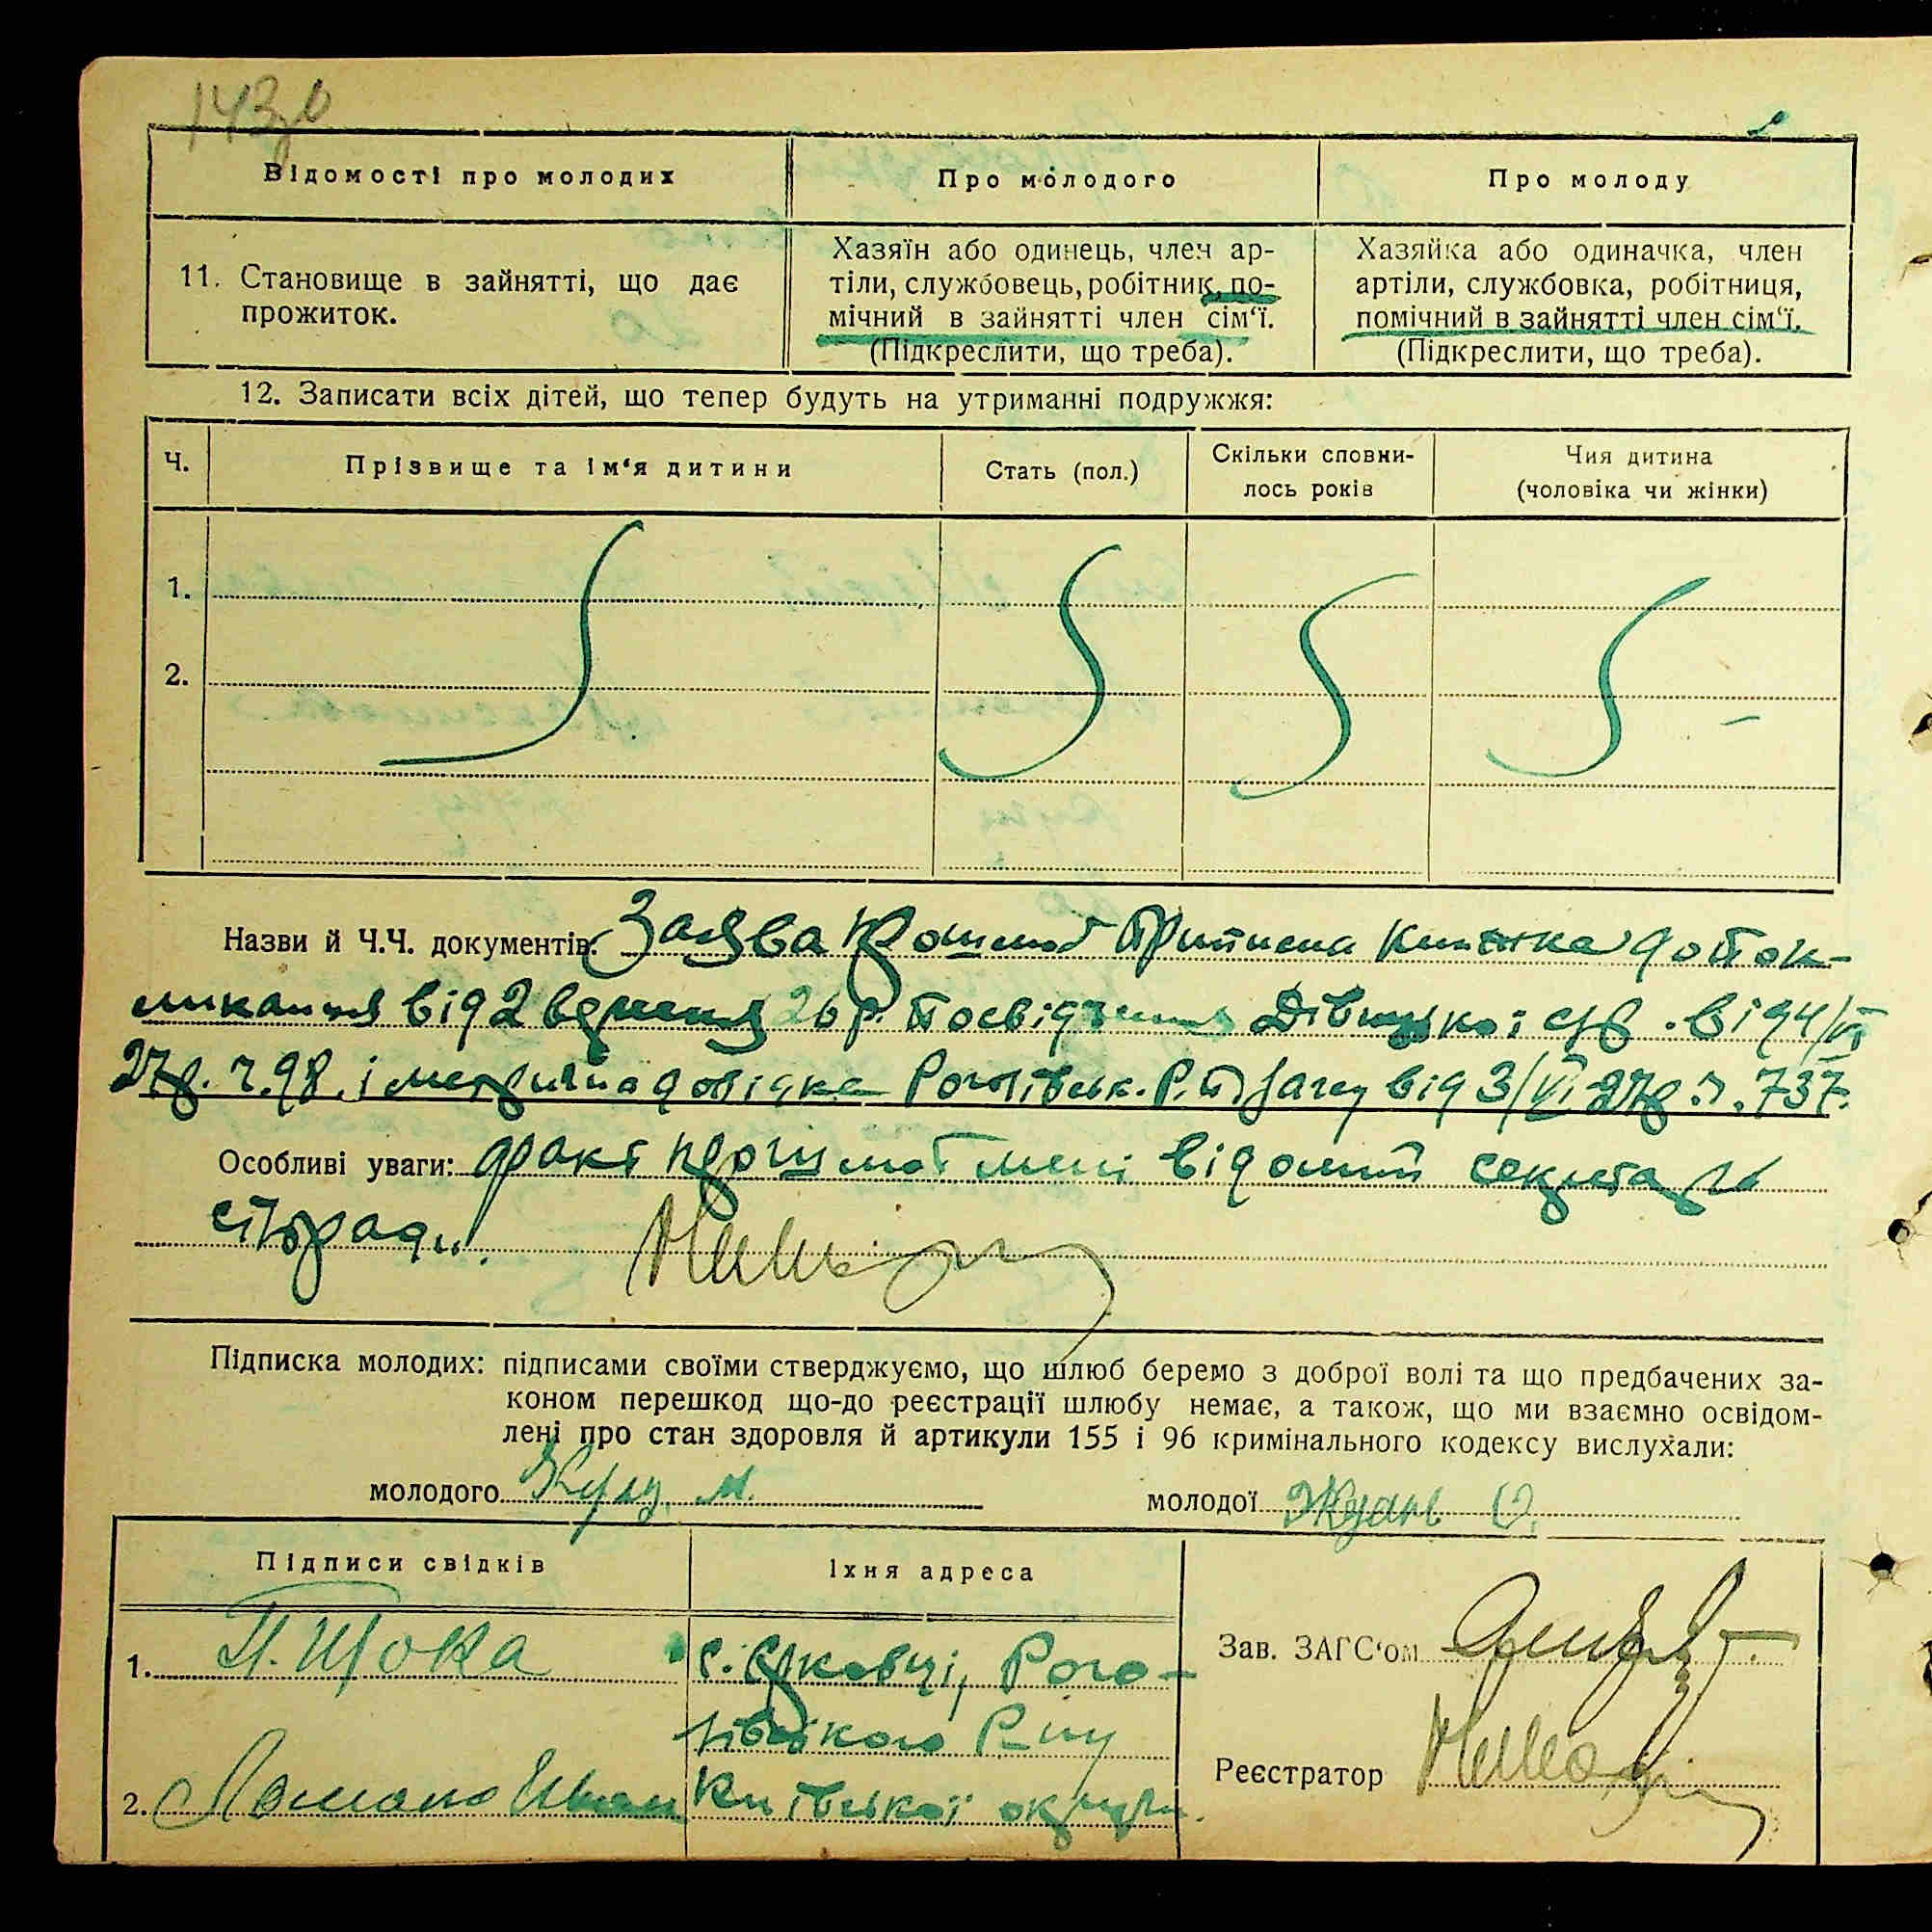 143
Відомості про молодих
Про молодого
Про молоду
11. Становище в зайнятті, що дає
прожиток.
Хазяїн або одинець, член ар-
тіли, службовець, робітник, по-
мічний в зайнятті член сім‘ї.
(Підкреслити, що треба).
Хазяйка або одиначка, член
артіли, службовка, робітниця,
помічний в зайнятті член сім‘ї.
(Підкреслити, що треба).
12. Записати всіх дітей, що тепер будуть на утриманні подружжя:
Ч.
Прізвище та ім‘я дитини
Стать (пол.)
Скільки сповни-
лось років
Чия дитина
(чоловіка чи жінки)
1.
2.
Назви й Ч.Ч. документів: Заява приписна книжка
від 2 26 р. посвідчення від 4/VI
27р. ч. 98. і метрична довідка Рогозівськ. Р. загсу від 3/VI 27р ч. 737.
Особливі уваги: факт мені відомий секретар
с/ради.
Підписка молодих: підписами своїми стверджуємо, що шлюб беремо з доброї волі та що предбачених за-
коном перешкод що-до реєстрації шлюбу немає, а також, що ми взаємно освідом-
лені про стан здоровля й артикули 155 і 96 кримінального кодексу вислухали:
молодого М.
молодої О.
Підписи свідків
Їхня адреса
1. П. Щока
с. Рого-
зівського Р-ну
2. Іван
Київської округи.
Зав. ЗАГС‘ом
Реєстратор